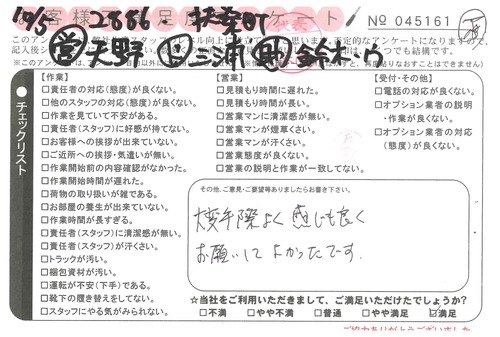 10/5 2886 扶桑町
お客様満足度アンケート!
№ 045161
営 矢野 三浦 助 鈴木
チェックリスト
【作業】
□責任者の対応(態度)が良くない。
□他のスタッフの対応(態度)が良くない。
□作業を見ていて不安がある。
□責任者(スタッフ)に好感が持てない。
□お客様への挨拶が出来ていない。
□ご近所への挨拶・気遣いが無い。
□作業開始前の内容確認がなかった。
□作業開始時間が遅れた。
□荷物の取り扱いが雑である。
□お部屋の養生が出来ていない。
□作業時間が長すぎる。
□責任者(スタッフ)に清潔感が無い。
□責任者(スタッフ)が汗くさい。
□トラックが汚い。
□梱包資材が汚い。
□運転が不安(下手)である。
□靴下の履き替えをしてない。
□スタッフにやる気がみられない。
【営業】
□見積もり時間に遅れた。
□見積もり時間が長い。
□営業マンに清潔感が無い。
□営業マンが煙草くさい。
□営業マンが汗くさい。
□営業態度が良くない。
□営業の説明と作業が一致してない。
【受付・その他】
□電話の対応が良くない。
□オプション業者の説明
・作業が良くない。
□オプション業者の対応
(態度)が良くない。
その他、ご意見・ご要望等ありましたらお書き下さい。
大変手際よく感じも良く
お願いしてよかったです。
☆当社をご利用いただきまして、ご満足いただけたでしょうか?
□不満 □やや不満 □普通 □やや満足 ☑満足
ご協力ありがとうございました